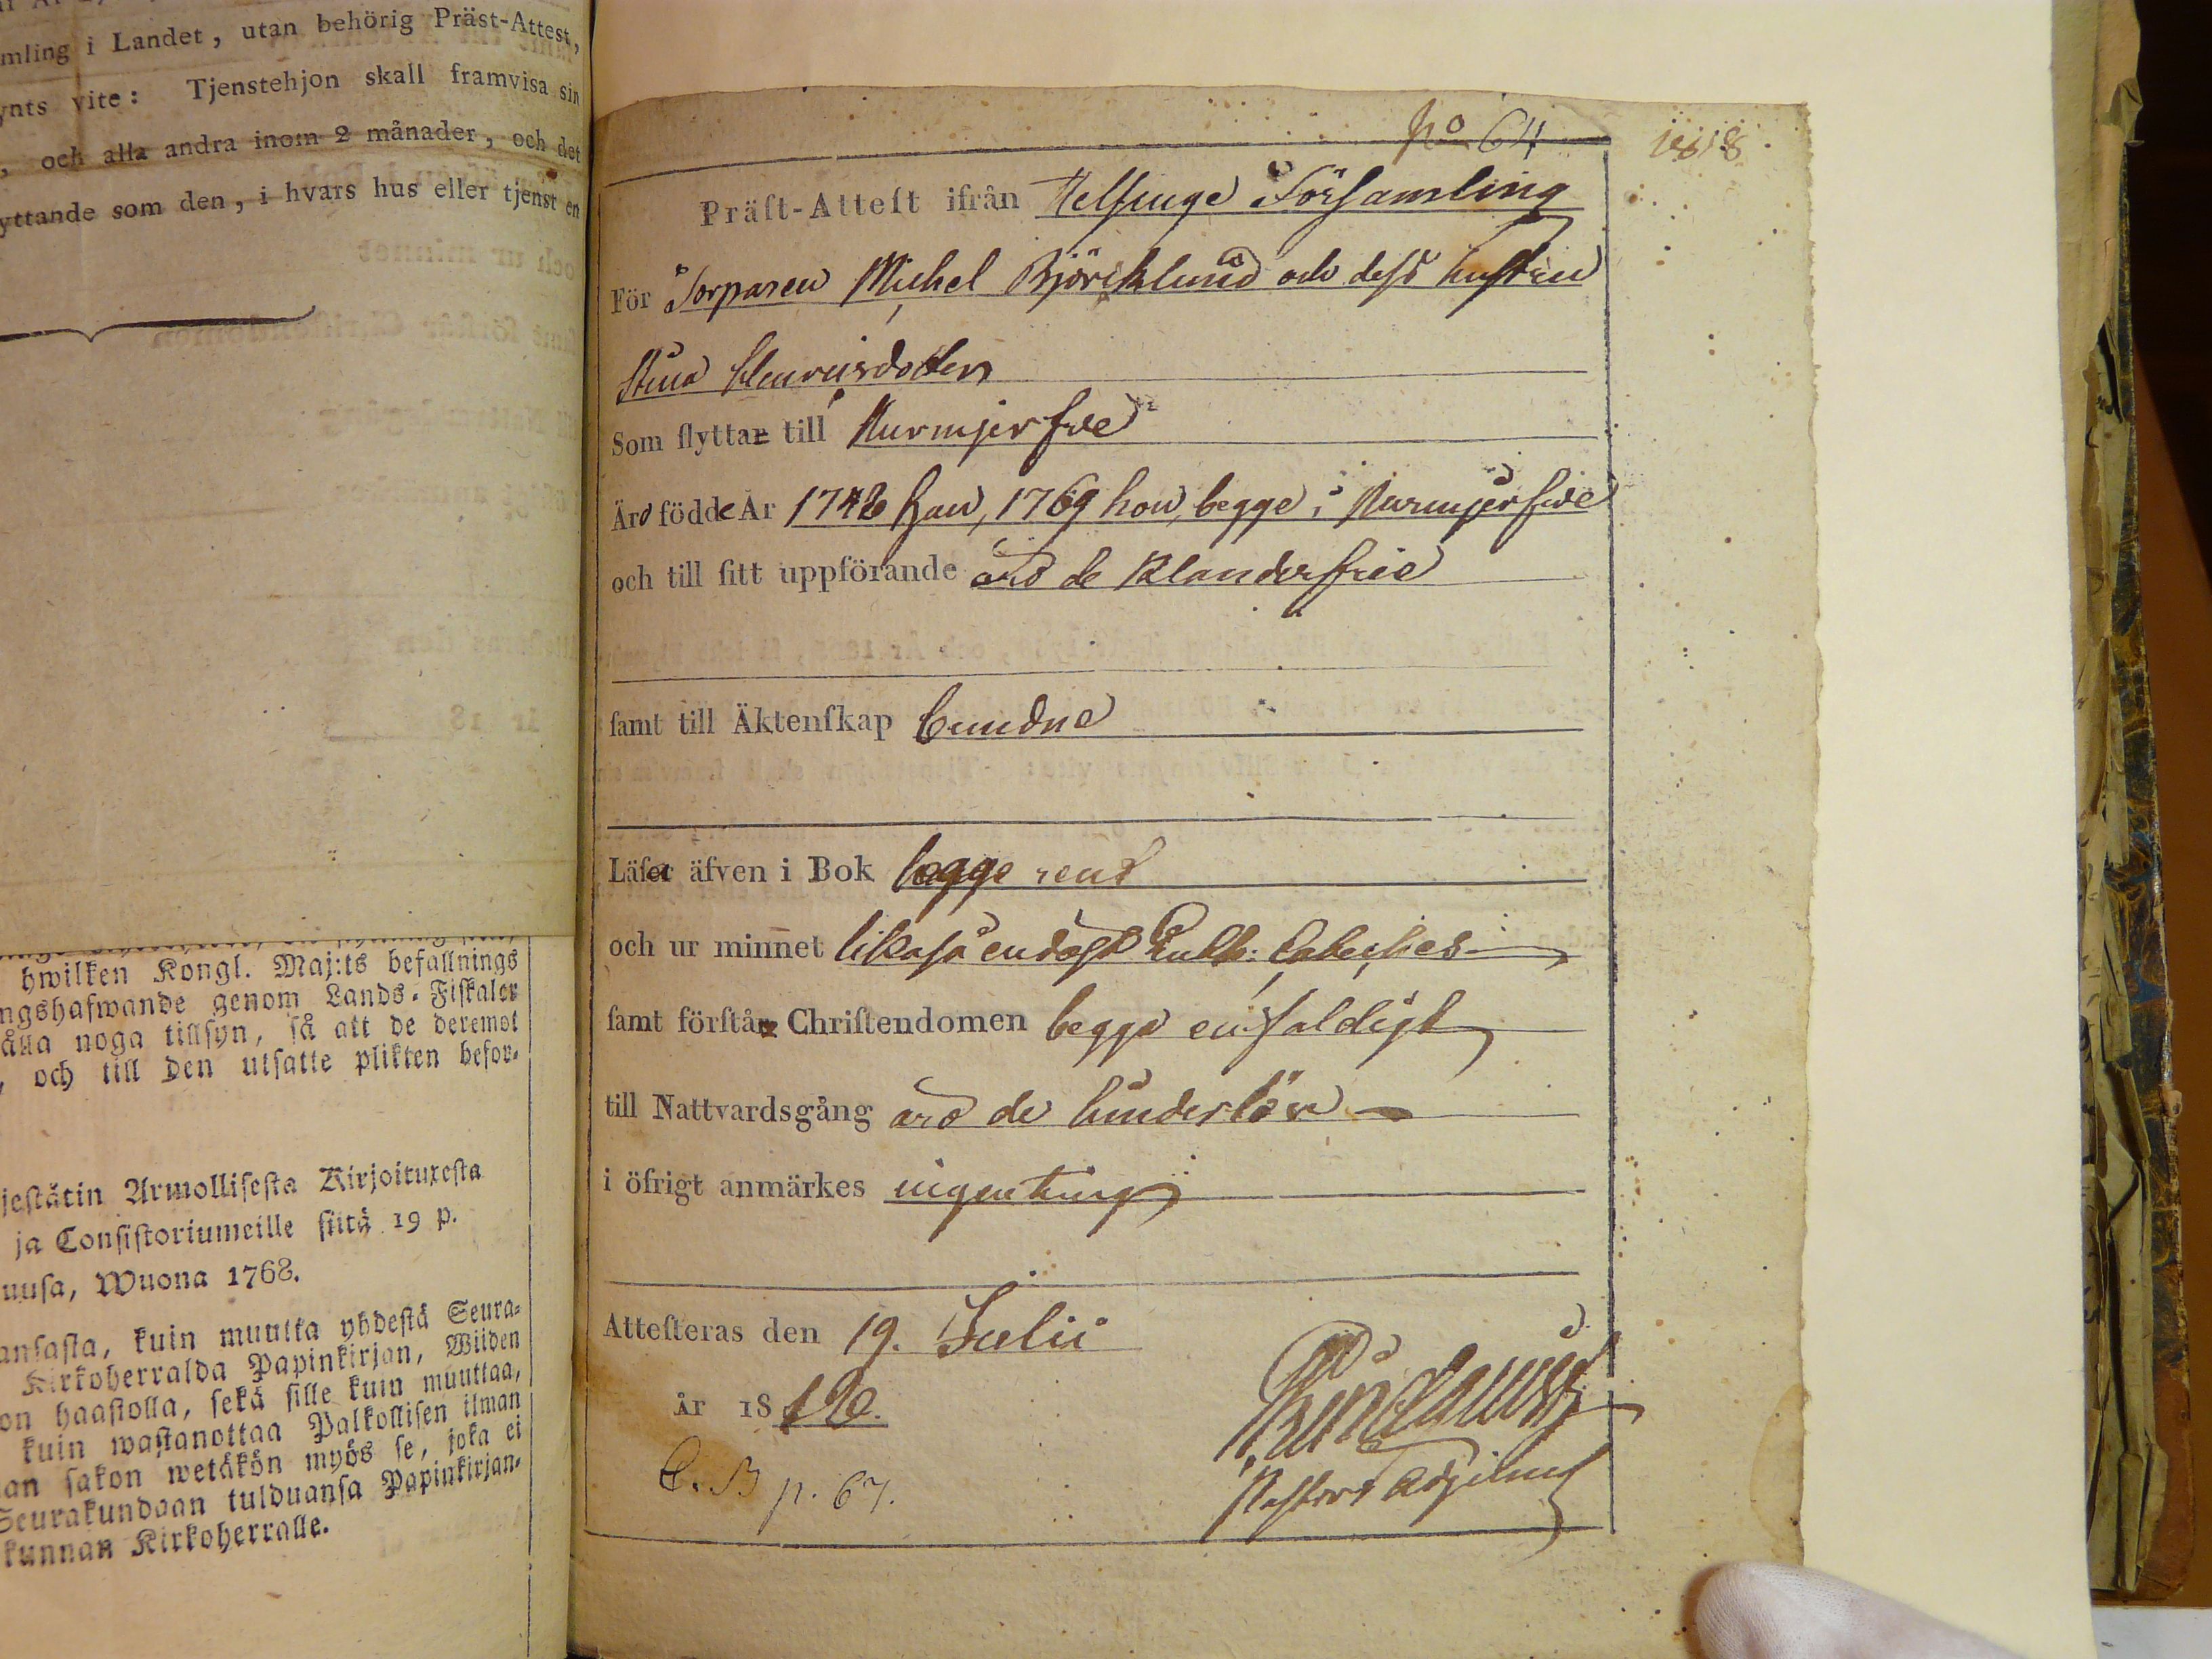 mling i Landet, utan behörig Präst-Attest,
ynts vite: Tjenstehjon skall framvisa sin
, och alla andra inom 2 månader, och det
yttande som den, i hvars hus eller tjenst en
hwilken Kongl. Maj:ts befallnings
ngshafwande genom Lands-Fiskaler
ålla noga tillsyn, så att de deremot
, och till den utsatte plikten befor-
jestätin Armollisesta Kirjoituxesta
ja Consistoriumeille siitä 19 p.
uusa, Wuona 1768.
ansasta, kuin muutta yhdestä Seura-
Kirkoherralda Papinkirjan, Wiiden
on haastolla, sekä sille kuin muuttaa,
kuin wastanottaa Palkollisen ilman
an sakon wetäkön myös se, joka ei
Seurakundaan tulduansa Papinkirjan-
kunnan Kirkoherralle.
No 64
1818
Präst-Attest ifrån Helsinge Församling
För Torparen Michel Björcklund och dess hustru
Stina Henricsdotter
Som flyttar till Nurmijerfve
Äro födde År 1742 han, 1769 hon, begge i Nurmijerfve
och till sitt uppförande äro de Klanderfrie
samt till Äktenskap bundne
Läser äfven i Bok begge rent
och ur minnet likaså endast Luth: Cateches
samt förstår Christendomen begge enfaldigt
till Nattvardsgång äro de hinderlöse
i öfrigt anmärkes ingenting
Attesteras den 19. Julii
år 18
C. B p. 67.
Pastors Adj